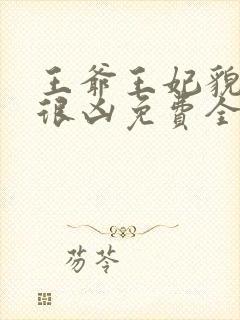 王爷王妃貌
很凶免费全
芴芩